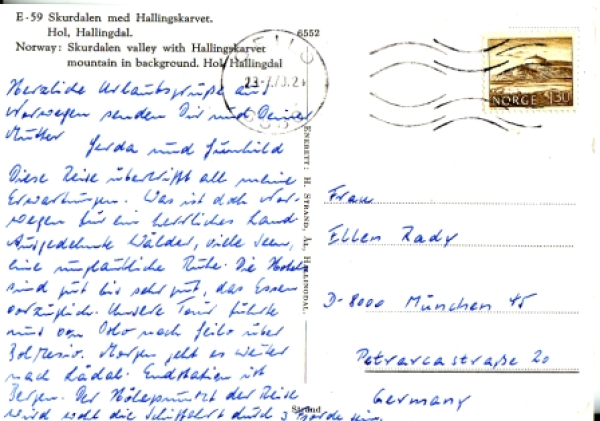 E-59 Skurdalen med Hallingskarvet.
Hol, Hallingdal.
6552
Norway: Skurdalen valley with Hallingskarvet
mountain in background. Hol, Hallingdal
NORGE 130
Herzliche Urlaubsgrüße aus
Norwegen senden Dir und Deiner
Mutter
Gerda und Gunhild
Diese Reise übertrifft all meine
Erwartungen. Was ist doch Nor-
wegen für ein herrliches Land
Ausgedehnte Wälder, viele Seen,
eine unglaubliche Ruhe. Die Hotels
sind gut bis sehr gut, das Essen
vorzüglich. Unsere Tour führte
uns von Oslo nach Geilo über
Morgen geht es weiter
nach Endstation ist
Bergen. Der Höhepunkt der Reise
wird wohl die Schiffahrt durch 3 Fjorde
ENERETT: H. STRAND, ÅL, HALLINGDAL.
Strand
Frau
Ellen Rady
D-8000 München 45
Petrarcastraße 20
Germany